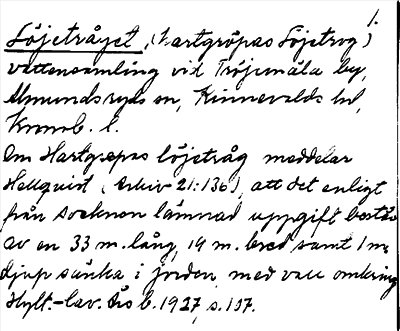 1.
Löjetråget, (Hartgröpas Löjetrog)
vattensamling vid Tröjemåla by,
Almundsryds sn, Kinnevalds hd,
Kronob. l.
Om Hartgrepas löjetråg meddelar
Hellquist (Arkiv 21:136), att det enligt
från socknen lämnad uppgift består
av en 33 m. lång, 14 m. bred samt 1 m
djup sänka i jorden med vall omkring
Hylt.-Cav. Årsb. 1927, s. 107.